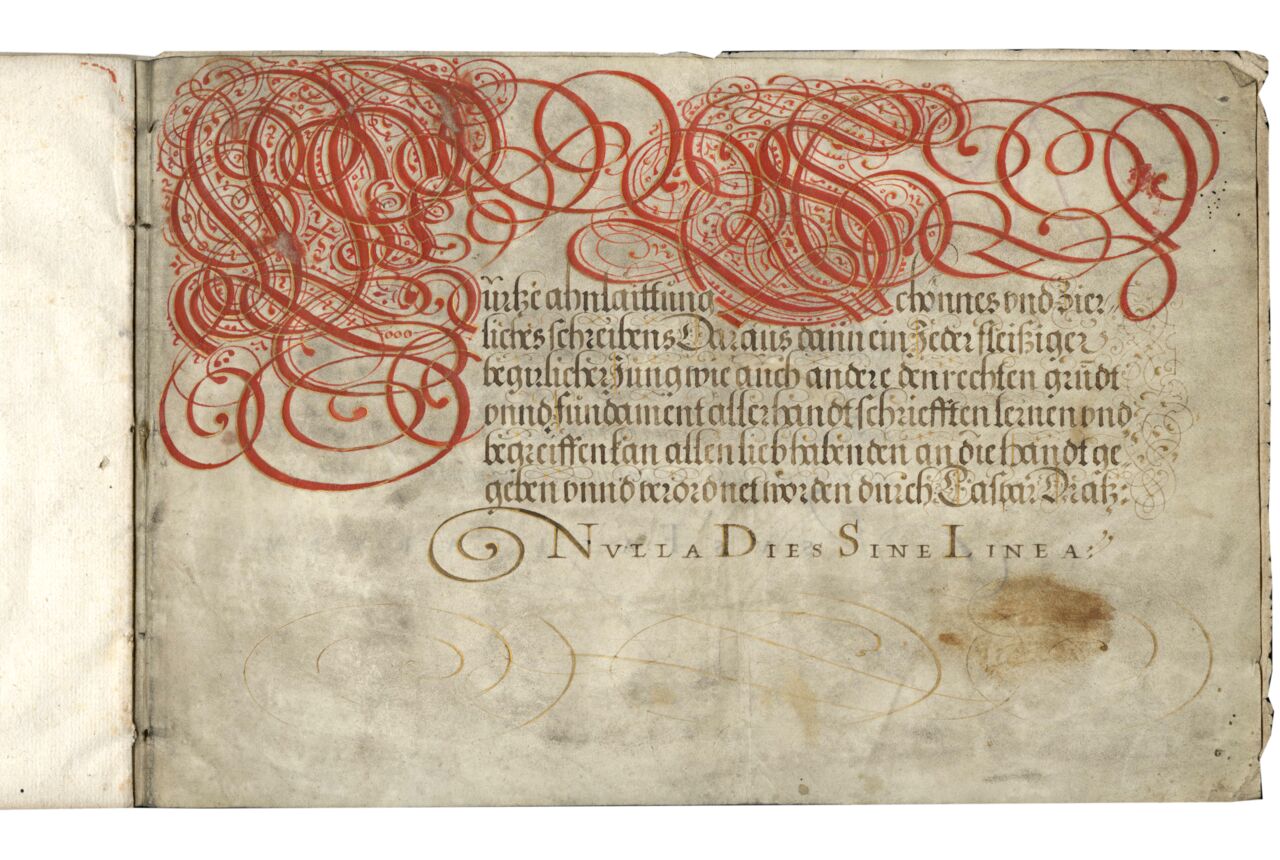 Kürtze ahnlaittung Schönnes vnd Zier-
liches schreibens Daraus dann ein Jeder fleißiger
begirlicher Jung wie auch andere den rechten grundt
vnnd fundament aller handt schriefften lernen vnd
begreiffen kan allen liebhabenden an die handt ge-
geben vnnd verordnet worden durch Caspar Dratz:
NVLLA DIES SINE LINEA